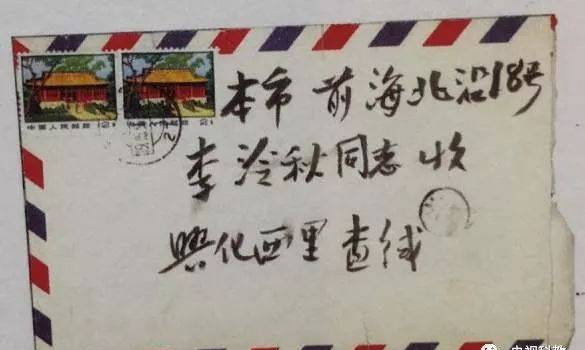 本市前海北沿18号
李冷秋同志收
兴化西里
中国人民邮政
中国人民邮政
央视科教